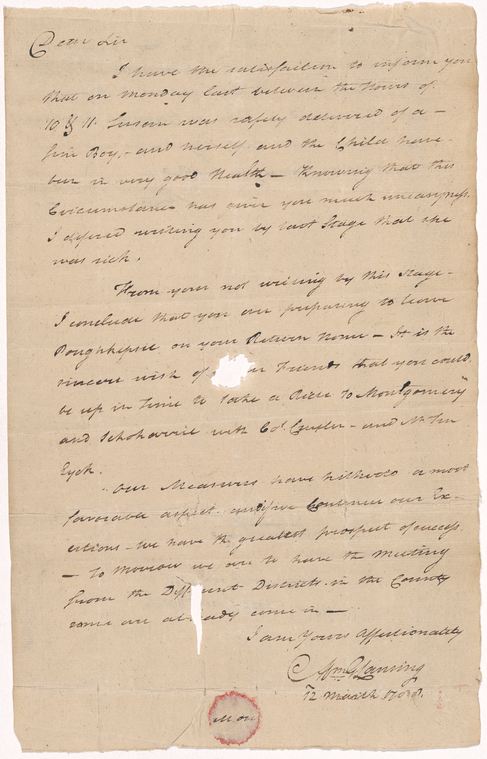 Dear Sir
I have the satisfaction to inform you
that on Monday last between the Hours of
10 & 11. Susan was safely delivered of a —
fine Boy, and herself and the Child have
been in very good Health — Knowing that this
Circumstance has given you much uneasyness.
I defered writing you by last Stage that she
was sick.
From your not writing by this Stage —
I conclude that you are preparing to leave
Poughkepsie on your Return home — It is the
sincere wish of Friends that you could
be up in time to take a Ride to Montgomery
and Schoharrie with Col. Cuyler — and Mr Ten
Eyck.
Our Measures have hitherto a most
favorable aspect and if we Continue our Ex-
ertions — we have the greatest prospect of success.
— to Morrow we are to have the Meeting
from the Different Districts in the County
some are already come in —
I am Yours Affectionately
Lansing
12 March